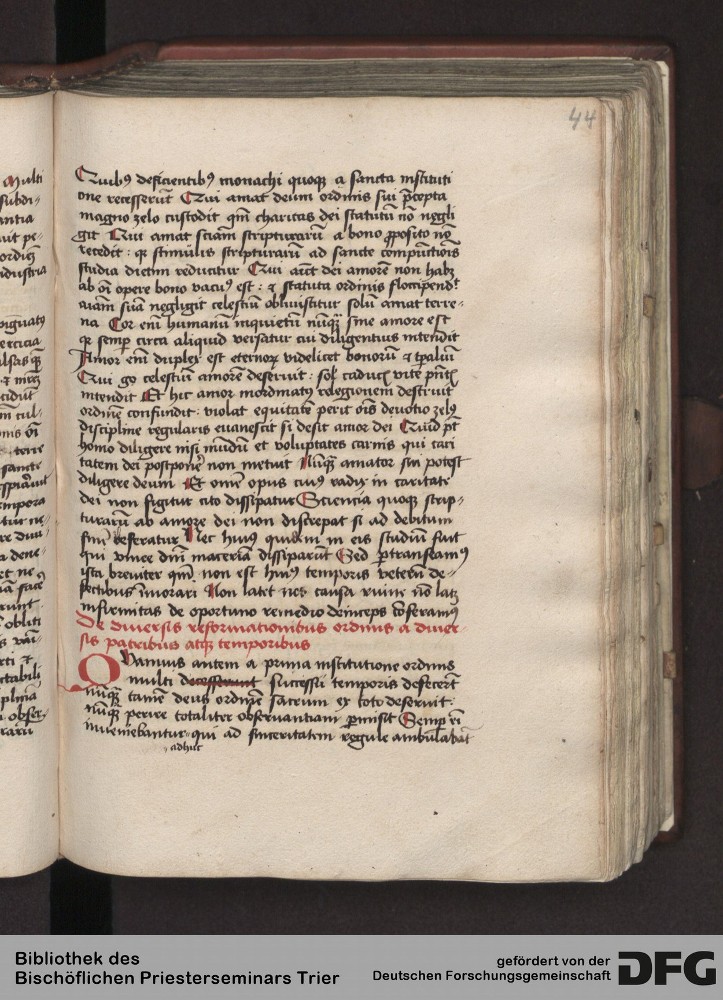 44
Quibus deficientibus monachi quoque a sancta instituti
one recesserūt Qui amat deum ordinis sui p̄cepta
magno zelo custodit qm̄ charitas dei statutū nō negli
git Qui amat sciam scripturarū a bono proposito nō
recedit : qz stimulis scripturarū ad sancte compūctiōis
studia dietim reducitur Qui aūt dei amorē non habz
ab oī opere bono vacuꝰ est : ⁊ statuta ordinis floccipendꝭ
aīam suā negligit celestiū obliuiscitur solū amat terre-
na Cor enī humanū inquietū nūqꝫ sine amore est
qz semp circa aliquid versatur cui diligentius intendit
Amor enī duplex est eternorꝝ videlicet bonorū ⁊ tpaliū
Qui go celestiū amorē deseruit : sol' caducꝭ vite pn̄tꝭ
intendit Et hic amor inordinatꝰ relegionem destruit
ordinē confundit : violat equitatē perit oīs deuotio zelꝰ
discipline regularis euanescit si desit amor dei Quid pt̄
homo diligere nisi mūdū et voluptates carnis qui cari
tatem dei postponē non metuit Nūqꝫ amator sui potest
diligere deum Et omē opus cuiꝰ radix in caritate
dei non figitur cito dissipatur Sciencia quoqꝫ scrip-
turarū ab amore dei non discrepat si ad debitum
finē referatur Nec huiꝰ quidem in eis studiū fuit
qui vinee dn̄i maceriā dissiparūt Sed ptranseamꝰ
ista breuiter qm̄ non est huiꝰ temporis veterū de-
fectibus īmorari Non latet nos causa ruine nō latꝫ
infirmitas de oportuno remedio deinceps cōferamꝰ
De diuersis reformationibus ordinis a diuer-
sis patribus atqꝫ temporibus
Quamuis autem a prima institutione ordinis
multi decesserunt successu temporis defecerūt
nūqꝫ tamē deus ordinē sacrum ex toto deseruit :
nūqꝫ perire totaliter obseruantiam pmisit Semp eī
inueniebantur qui ad sinceritatem regule ambulabāt
adhuc
Bibliothek des
Bischöflichen Priesterseminars Trier
gefördert von der
Deutschen Forschungsgemeinschaft
DFG